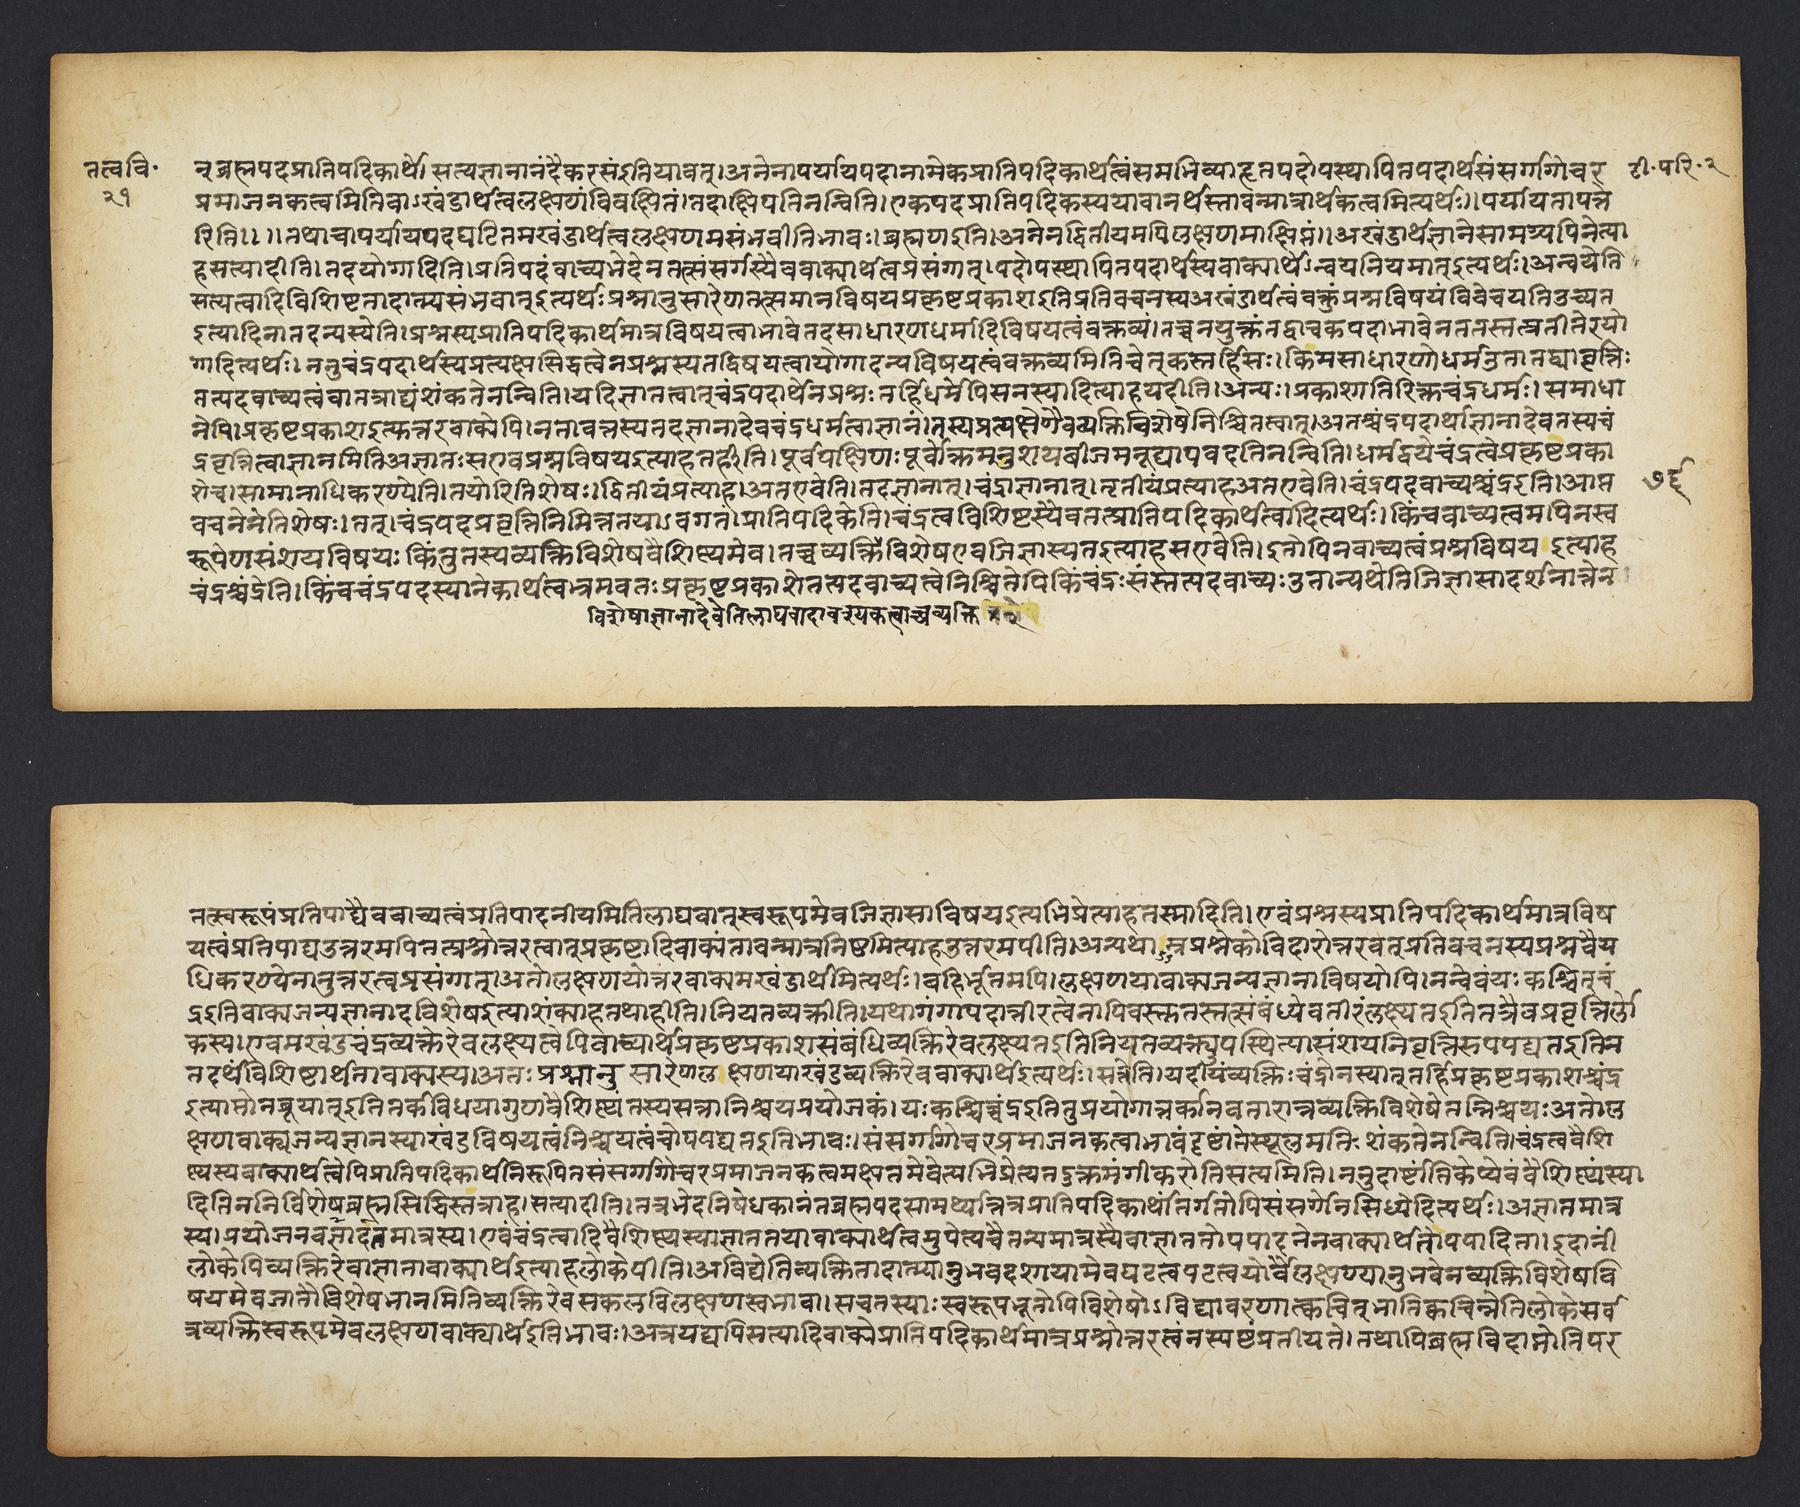 तत्ववि॰
२१
टी॰परि॰२
न्ब्रह्मपदप्रातिपदिकार्थो सत्यज्ञानानंदैकरसंइतियावत्।अनेनापर्यायपदानामेकप्रातिपदिकार्थत्वंसमभिव्याहृतपदोपस्थापितपदार्थसंसर्गागोचर
प्रमाजनकत्वमितिवाऽखंडार्थत्वलक्षणंविवक्षितं।तदाक्षिपतिनन्विति।एकपदप्रातिपदिकस्ययावानर्थस्तावन्मात्रार्थकत्वमित्यर्थः।।पर्यायतापत्ते
रिति।।।।तथाचापर्यायपदघटितमखंडार्थत्वलक्षणमसंभवीतिभावः।ब्रह्मणइति।अनेनद्वितीयमपिलक्षणमाक्षिप्तं।।अखंडार्थज्ञानेसामग्र्यपिनेत्या
हसत्यादीति।तदयोगादिति।प्रतिपदंवाच्यभेदेनतत्संसर्गस्यैववाक्यार्थत्वप्रसंगात्।पदोपस्थापितपदार्थस्यवाक्यार्थेऽन्वयनियमात्इत्यर्थः।अन्वयेति
सत्यत्वादिविशिष्टतादात्म्यसंभवात्इत्यर्थःप्रश्नानुसारेणतत्समानविषयप्रकृष्टप्रकाशइतिप्रतिवचनस्यअखंडार्थत्वंवक्तुंप्रश्नविषयंविवेचयतिउच्यत
इत्यादिनातदन्यस्येति।प्रश्नस्यप्रातिपदिकार्थमात्रविषयत्वाभावेतदसाधारणधर्मादिविषयत्वंवक्तव्यं।तच्चनयुक्तंतद्वाचकपदाभावेनततस्तत्प्रतीतेरयो
गादित्यर्थः।ननुचंद्रपदार्थस्यप्रत्यक्षसिद्धत्वेनप्रश्नस्यतद्विषयत्वायोगादन्यविषयत्वंवक्तव्यमितिचेत्कस्तर्हिसः।किमसाधारणोधर्मउततद्व्यावृत्तिः
तत्पदवाच्यत्वंवातत्राद्यंशंकतेनन्विति।यदिज्ञातत्वात्चंद्रपदार्थेनप्रश्नःतर्हिधर्मेपिसनस्यादित्याहयदीति।अन्यः।प्रकाशातिरिक्तचंद्रधर्मः।समाधा
नेपि।प्रकृष्टप्रकाशइत्यत्तरवाक्येपि।नतावत्तस्यतदज्ञानादेवचंद्रधर्मत्वाज्ञानं।तस्यप्रत्यक्षेणैवव्यक्तिविशेषेनिश्चितत्वात्।अतश्चंद्रपदार्थाज्ञानादेवतस्यचं
द्रवृत्तित्वाज्ञानमितिअज्ञातःसएवप्रश्नविषयइत्याहतर्हीति।पूर्वपक्षिणःपूर्वोक्तमनुशयबीजमनूद्यापवदतिनन्विति।धर्मद्वयेचंद्रत्वेप्रकृष्टप्रका
शेच।सामानाधिकरण्येति।तयोरितिशेषः।द्वितीयंप्रत्याह।अतएवेति।तदज्ञानात्।चंद्राज्ञानात्।तृतीयंप्रत्याहअतएवेति।चंद्रपदवाच्यश्चंद्रइति।आप्त
७६
वचनेनेतिशेषः।तत्।चंद्रपदप्रवृत्तिनिमित्ततयाऽवगतं।प्रातिपदिकेति।चंद्रत्वविशिष्टस्यैवतत्प्रातिपदिकार्थत्वादित्यर्थः।किंचवाच्यत्वमपिनस्व
रूपेणसंशयविषयःकिंतुतस्यव्यक्तिविशेषवैशिष्ट्यमेव।तच्चव्यक्तिविशेषएवजिज्ञास्यतइत्याहसएवेति।इतोपिनवाच्यत्वंप्रश्नविषयइत्याह
चंद्रश्चंद्रेति।किंचचंद्रपदस्यानेकार्थत्वभ्रमवतःप्रकृष्टप्रकाशेतत्पदवाच्यत्वेनिश्चितेपिकिंचंद्रःसंस्तत्पदवाच्यःउतान्यथेतिजिज्ञासादर्शनात्तेन
विशेषाज्ञानादेवेतिलाघवादावश्यकत्वाच्चव्यक्ति
तत्स्वरूपंप्रतिपाद्यैववाच्यत्वंप्रतिपादनीयमितिलाघवात्स्वरूपमेवजिज्ञासाविषयइत्यभिप्रेत्याहतस्मादिति।एवंप्रश्नस्यप्रातिपदिकार्थमात्रविष
यत्वंप्रतिपाद्यउत्तरमपितत्प्रश्नोत्तरत्वात्प्रकृष्टादिवाक्यंतावन्मात्रनिष्ठमित्याहउत्तरमपीति।अन्यथाम्रप्रश्नेकोविदारोत्तरवत्प्रतिवचनस्यप्रश्नवैय
धिकरण्येनानुत्तरत्वप्रसंगात्।अतोलक्षणयोत्तरवाक्यमखंडार्थमित्यर्थः।बहिर्भूतमपि।लक्षणयावाक्यजन्यज्ञानाविषयोपि।नन्वेवंयःकश्चित्चं
द्रइतिवाक्यजन्यज्ञानादविशेषइत्याशंक्याहतथाहीति।नियतव्यक्तीति।यथागंगापदात्तीरत्वेनापिवस्तुतस्तत्संबंध्येवतीरंलक्ष्यतइतितत्रैवप्रवृत्तिर्लो
कस्य।एवमखंडचंद्रव्यक्तेरेवलक्ष्यत्वेपिवाच्यार्थप्रकृष्टप्रकाशसंबंधिव्यक्तिरेवलक्ष्यतइतिनियतव्यक्त्युपस्थित्यासंशयनिवृत्तिरुपपद्यतइतिन
तदर्थविशिष्टार्थतावाक्यस्य।अतःप्रश्नानुसारेणलक्षणयाखंडव्यक्तिरेववाक्यार्थइत्यर्थः।सत्तेति।यदीयंव्यक्तिःचंद्रोनस्यात्तर्हिप्रकृष्टप्रकाशश्चंद्र
इत्याप्तोनब्रूयात्इतितर्कविधयागुणवैशिष्ट्यंतस्यसत्तानिश्चयप्रयोजकं।यःकश्चिच्चंद्रइतितुप्रयोगात्तर्कानवतारान्नव्यक्तिविशेषेतन्निश्चयःअतोल
क्षणवाक्यजन्यज्ञानस्याखंडविषयत्वंनिश्चयत्वंचोपपद्यतइतिभावः।संसर्गागोचरप्रमाजनकत्वाभावंदृष्टांतेस्थूलमतिःशंकतेनन्विति।चंद्रत्ववैशि
ष्ट्यस्यवाक्यार्थत्वेपिप्रातिपदिकार्थनिरूपितसंसर्गागोचरप्रमाजनकत्वमक्षतमेवेत्यभिप्रेत्यतदुक्तमंगीकरोतिसत्यमिति।ननुदार्ष्टांतिकेप्येवंवैशिष्ट्यंस्या
दितिननिर्विशेषब्रह्मसिद्धिस्तत्राह।सत्यादीति।तत्रभेदनिषेधकानंतब्रह्मपदसामर्थ्यान्नतत्रप्रातिपदिकार्थांतर्गतोपिसंसर्गोनसिध्येदित्यर्थः।अज्ञातमात्र
स्य।प्रयोजनवज्ञातमात्रस्य।एवंचंद्रत्वादिवैशिष्ट्यस्याज्ञाततयावाक्यार्थत्वमुपेत्यचैतन्यमात्रस्यैवाज्ञाततोपपादनेनवाक्यार्थतोपपादिता।इदानीं
लोकेपिव्यक्तिरेवाज्ञातावाक्यार्थइत्याहलोकेपीति।अविद्येतिव्यक्तितादात्म्यानुभवदशायामेवघटत्वपटत्वयोर्वैलक्षण्यानुभवेनव्यक्तिविशेषवि
षयमेवजातौविशेषभानमितिव्यक्तिरेवसकलविलक्षणस्वभावा।सचतस्याःस्वरूपभूतोपिविशेषोऽविद्यावरणात्क्वचित्भातिक्वचिन्नेतिलोकेसर्व
त्रव्यक्तिस्वरूपमेवलक्षणवाक्यार्थइतिभावः।अत्रयद्यपिसत्यादिवाक्येप्रातिपदिकार्थमात्रप्रश्नोत्तरत्वंनस्पष्टंप्रतीयते।तथापिब्रह्मविदाप्नोतिपर